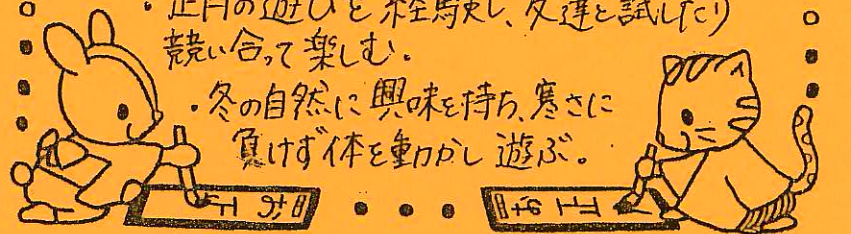 ・正月の遊びを経験し、友達と試したり
競い合って楽しむ。
・冬の自然に興味を持ち、寒さに
負けず体を動かし遊ぶ。
お正
お正月